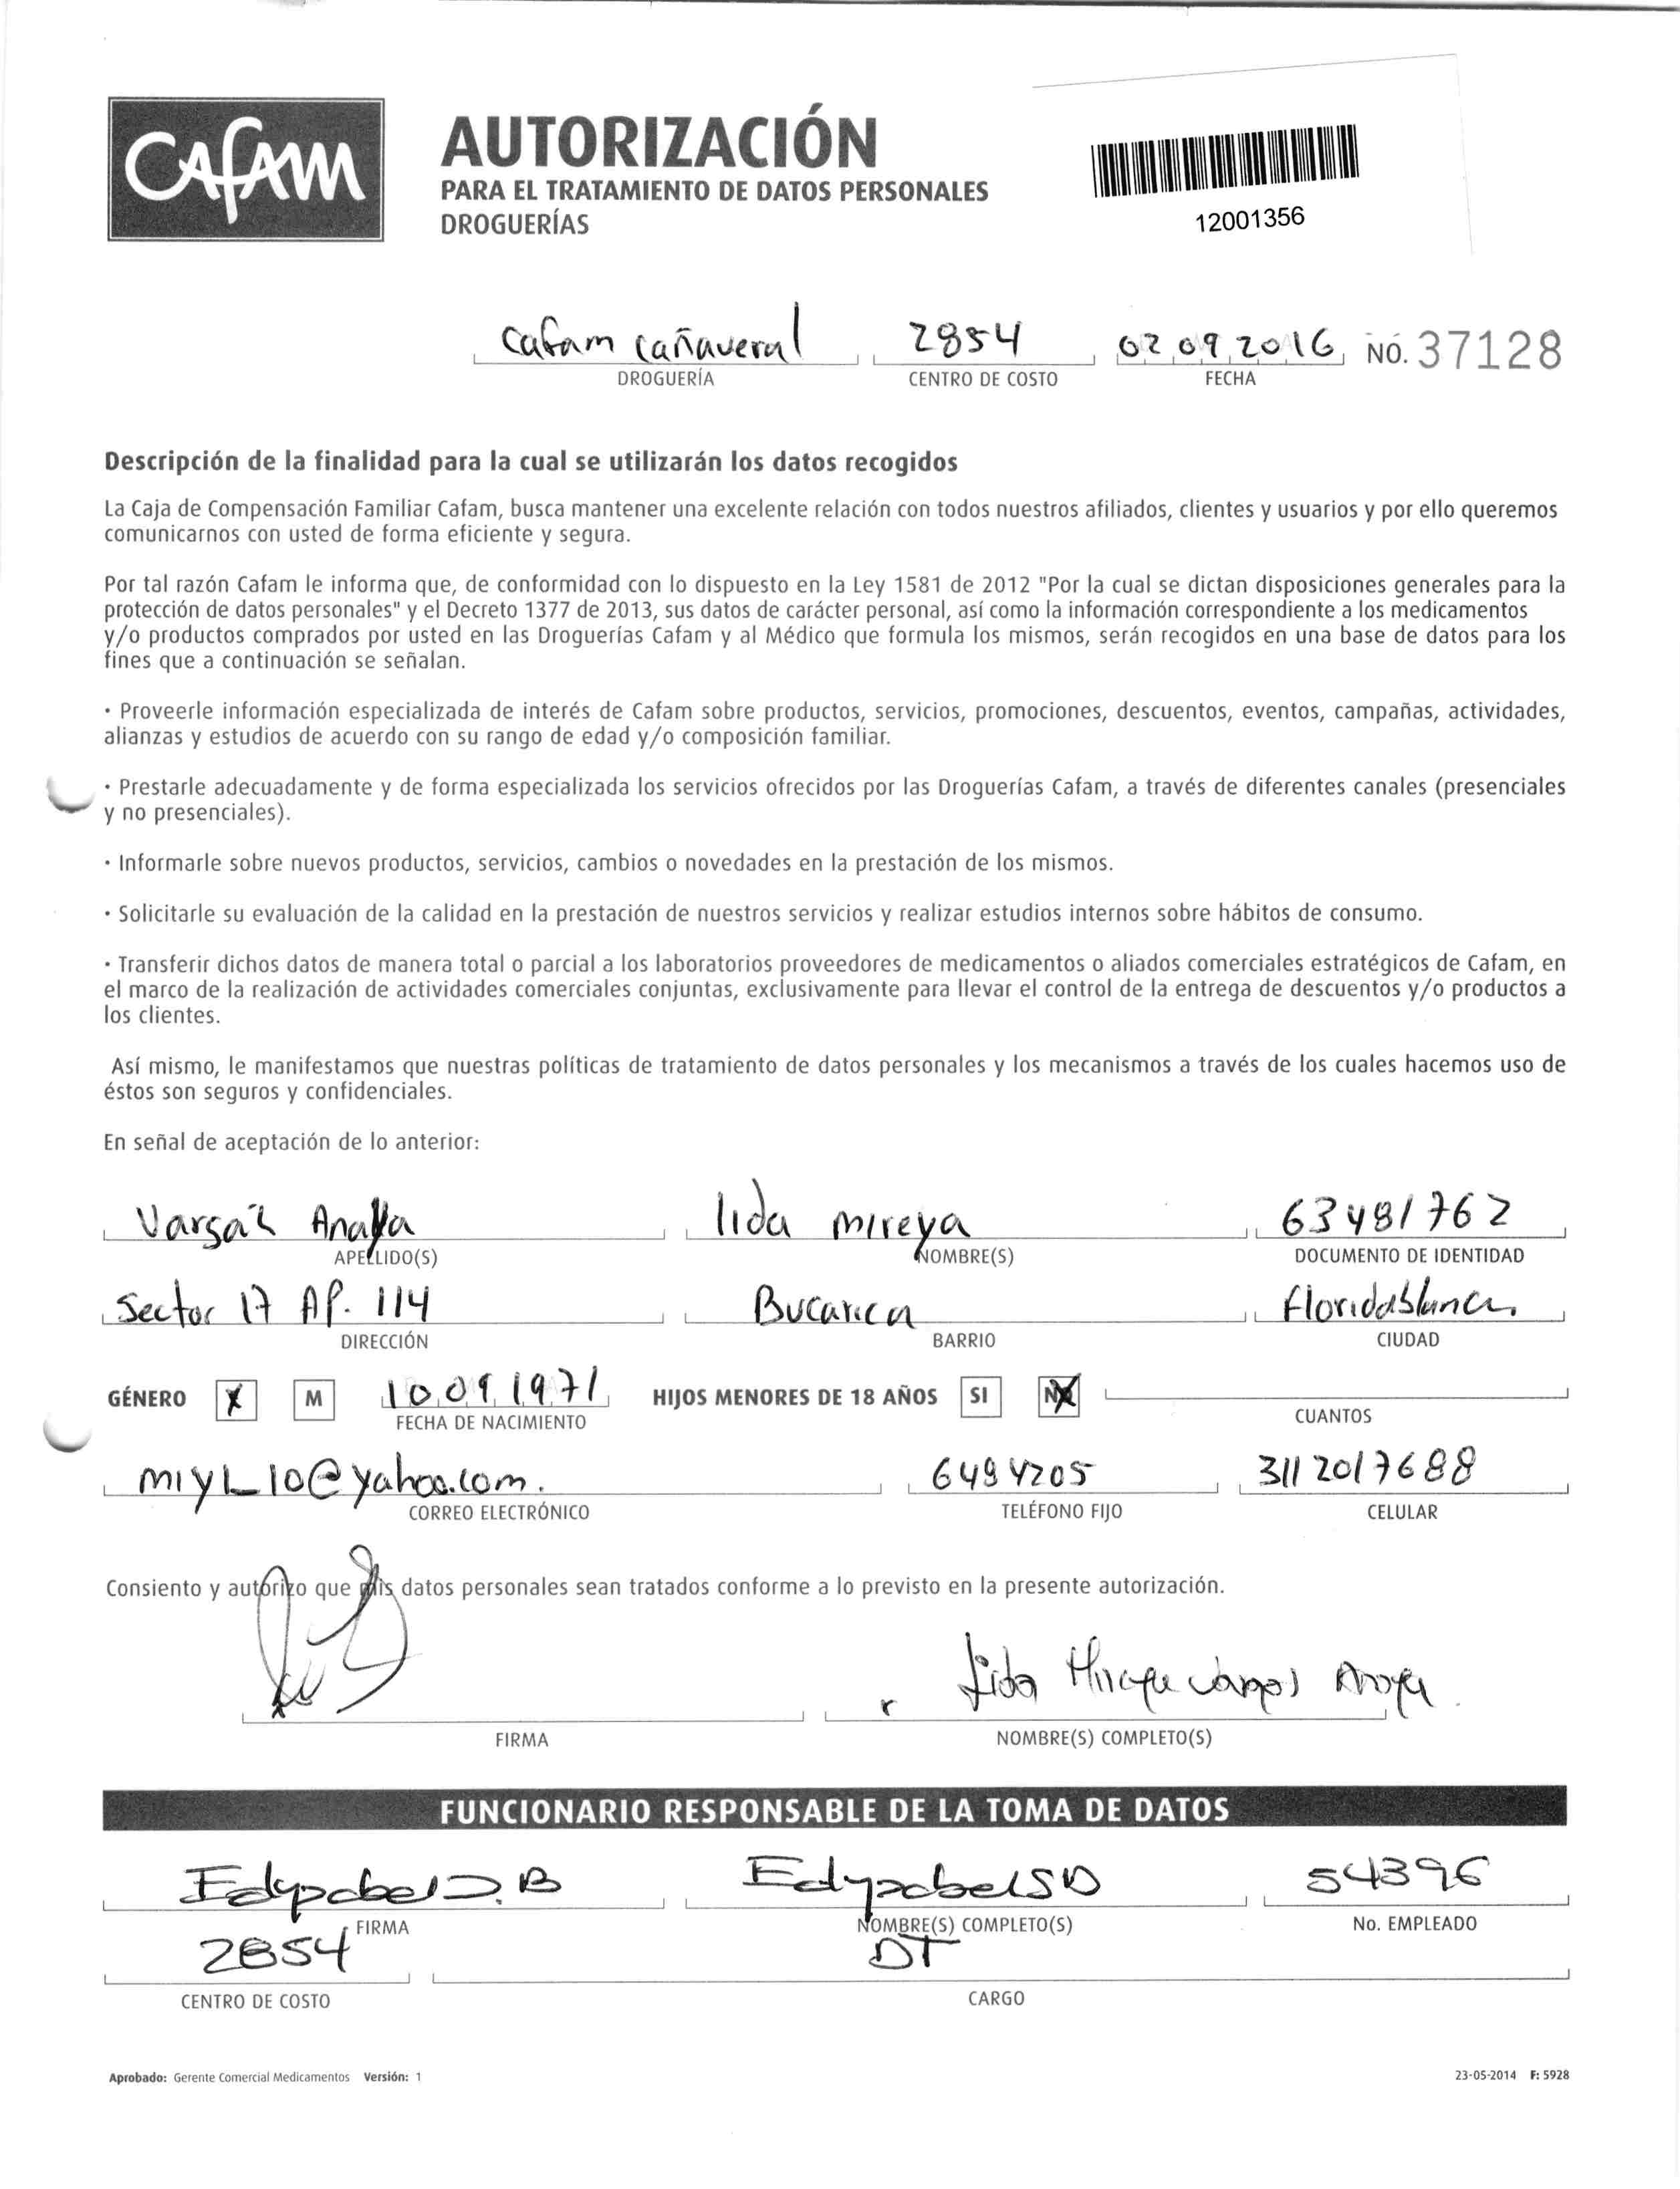 CAFAM
AUTORIZACIÓN
PARA EL TRATAMIENTO DE DATOS PERSONALES
DROGUERÍAS
12001356
Cafam Cañaveral 2854 02 09 2016 NO. 37128
DROGUERÍA CENTRO DE COSTO FECHA
Descripción de la finalidad para la cual se utilizarán los datos recogidos
La Caja de Compensación Familiar Cafam, busca mantener una excelente relación con todos nuestros afiliados, clientes y usuarios y por ello queremos
comunicarnos con usted de forma eficiente y segura.
Por tal razón Cafam le informa que, de conformidad con lo dispuesto en la Ley 1581 de 2012 "Por la cual se dictan disposiciones generales para la
protección de datos personales" y el Decreto 1377 de 2013, sus datos de carácter personal, así como la información correspondiente a los medicamentos
y/o productos comprados por usted en las Droguerías Cafam y al Médico que formula los mismos, serán recogidos en una base de datos para los
fines que a continuación se señalan.
· Proveerle información especializada de interés de Cafam sobre productos, servicios, promociones, descuentos, eventos, campañas, actividades,
alianzas y estudios de acuerdo con su rango de edad y/o composición familiar.
· Prestarle adecuadamente y de forma especializada los servicios ofrecidos por las Droguerías Cafam, a través de diferentes canales (presenciales
y no presenciales).
· Informarle sobre nuevos productos, servicios, cambios o novedades en la prestación de los mismos.
· Solicitarle su evaluación de la calidad en la prestación de nuestros servicios y realizar estudios internos sobre hábitos de consumo.
· Transferir dichos datos de manera total o parcial a los laboratorios proveedores de medicamentos o aliados comerciales estratégicos de Cafam, en
el marco de la realización de actividades comerciales conjuntas, exclusivamente para llevar el control de la entrega de descuentos y/o productos a
los clientes.
Así mismo, le manifestamos que nuestras políticas de tratamiento de datos personales y los mecanismos a través de los cuales hacemos uso de
éstos son seguros y confidenciales.
En señal de aceptación de lo anterior:
Vargas Anaya lida mireya 63481762
APELLIDO(S) NOMBRE(S) DOCUMENTO DE IDENTIDAD
Sector 17 AP. 114 Bucarica Floridablanca.
DIRECCIÓN BARRIO CIUDAD
GÉNERO X M 10 09 1971 HIJOS MENORES DE 18 AÑOS SI NO
FECHA DE NACIMIENTO CUANTOS
miyL10@yahoo.com. 6494205 3112017688
CORREO ELECTRÓNICO TELÉFONO FIJO CELULAR
Consiento y autorizo que mis datos personales sean tratados conforme a lo previsto en la presente autorización.
Lida Mireya Vargas Anaya
FIRMA NOMBRE(S) COMPLETO(S)
FUNCIONARIO RESPONSABLE DE LA TOMA DE DATOS
54396
FIRMA NOMBRE(S) COMPLETO(S) No. EMPLEADO
2854 DT
CENTRO DE COSTO CARGO
Aprobado: Gerente Comercial Medicamentos Versión: 1 23-05-2014 F: 5928